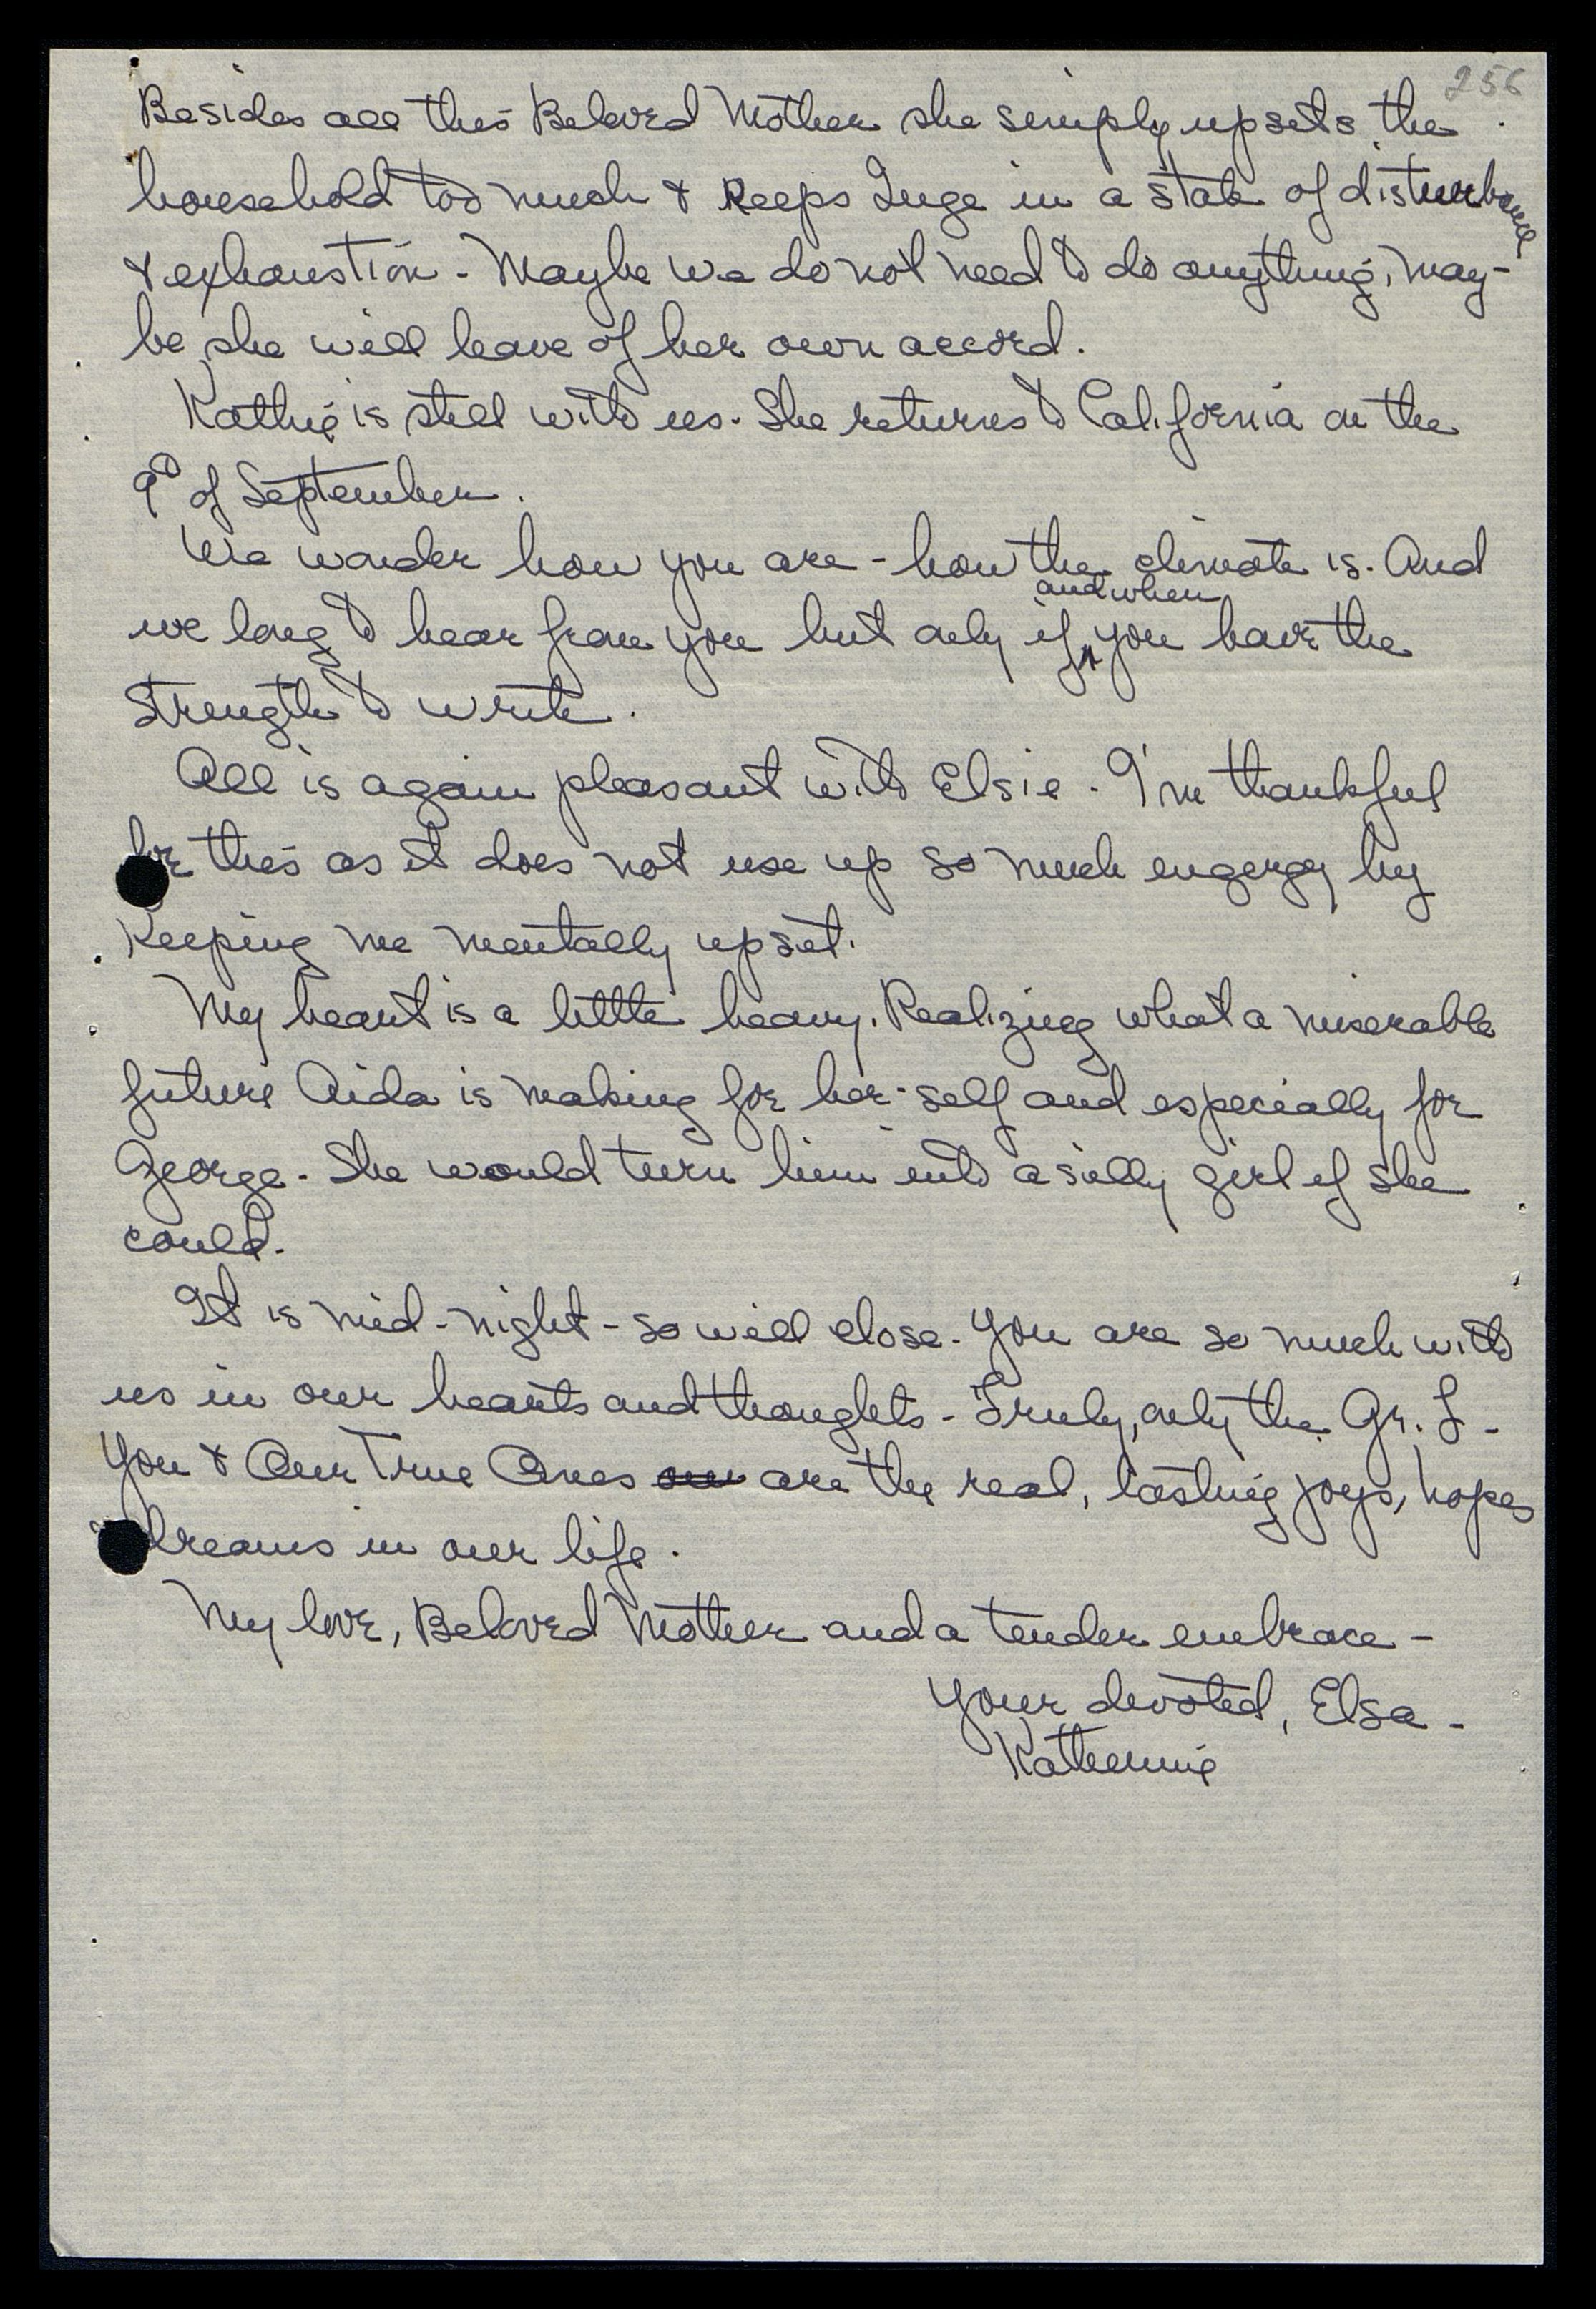 256
Besides all this Beloved Mother she simply upsets the
household too much & keeps Inge in a state of disturbance
& exhaustion - Maybe we do not need to do anything, may-
be she will leave of her own accord.
Kathie is still with us. She returns to California on the
9th of September.
We wonder how you are - how the climate is. And
and when
we long to hear from you but only if you have the
strength to write.
All is again pleasant with Elsie. I'm thankful
for this as it does not use up so much engergy by
keeping me mentally upset.
My heart is a little heavy. Realizing what a miserable
future Aida is making for her-self and especially for
George. She would turn him into a silly girl if she
could.
It is mid-night - so will close. You are so much with
us in our hearts and thoughts - Truly, only the Gr. L -
You & Our True Ones are the real, lasting joys, hopes
dreams in our life.
My love, Beloved Mother and a tender embrace -
Your devoted, Elsa -
Katherine